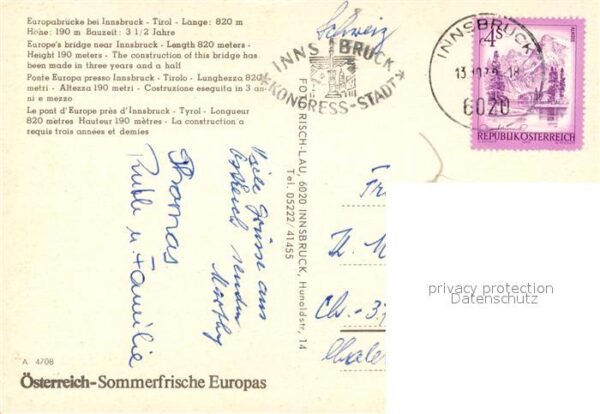 Europabrücke bei Innsbruck - Tirol - Länge: 820 m
Höhe: 190 m Bauzeit: 3 1/2 Jahre
Europe's bridge near Innsbruck - Length 820 meters -
Height 190 meters - The construction of this bridge has
been made in three years and a half
Ponte Europa presso Innsbruck - Tirolo - Lunghezza 820
metri - Altezza 190 metri - Costruzione eseguita in 3 an-
ni e mezzo
Le pont d'Europe près d'Innsbruck - Tyrol - Longueur
820 mètres Hauteur 190 mètres - La construction a
requis trois années et demies
Schweiz
INNSBRUCK
KONGRESS-STADT
INNSBRUCK
6020
4S
REPUBLIK ÖSTERREICH
RISCH-LAU, 6020 INNSBRUCK, Hunoldstr. 14
Tel. 05222/41455
Viele Grüsse aus
senden
Thomas
Ruth u. Familie
privacy protection
Datenschutz
A 4708
Österreich-Sommerfrische Europas